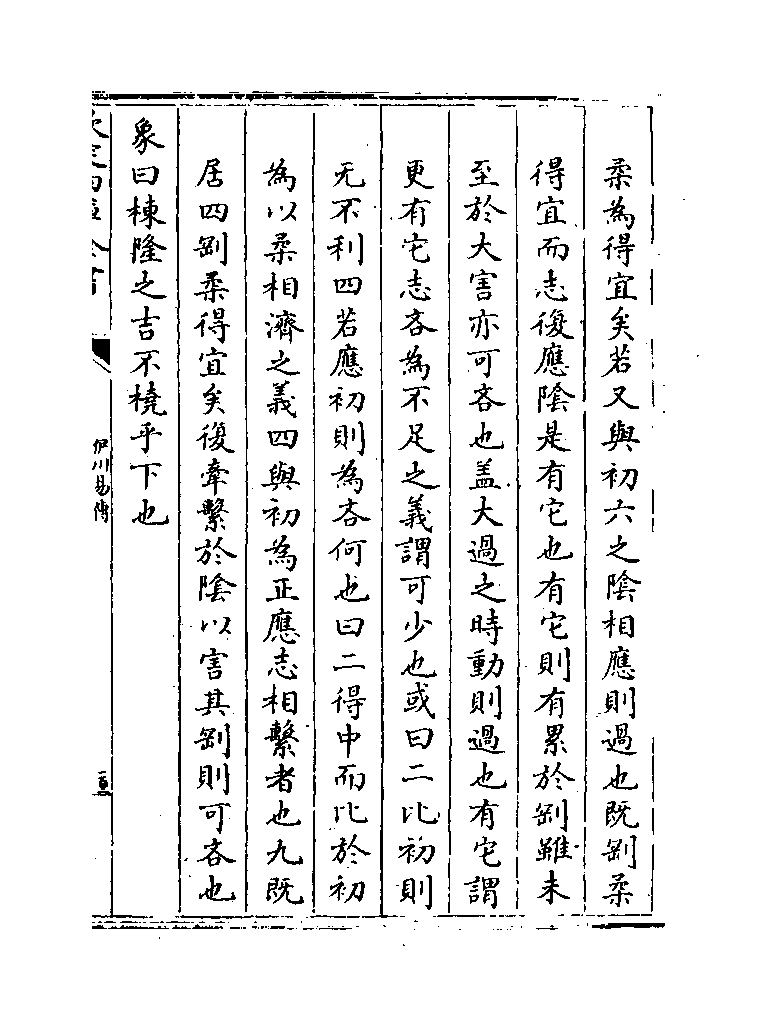 柔為得宜矣若又與初六之陰相應則過也既剛柔
得宜而志復應陰是有它也有它則有累於剛雖未
至於大害亦可吝也蓋大過之時動則過也有它謂
更有它志吝為不足之義謂可少也或曰二比初則
无不利四若應初則為吝何也曰二得中而比於初
為以柔相濟之義四與初為正應志相繫者也九既
居四剛柔得宜矣復牽繫於陰以害其剛則可吝也
象曰棟隆之吉不橈乎下也
欽定四庫全書
伊川易傳